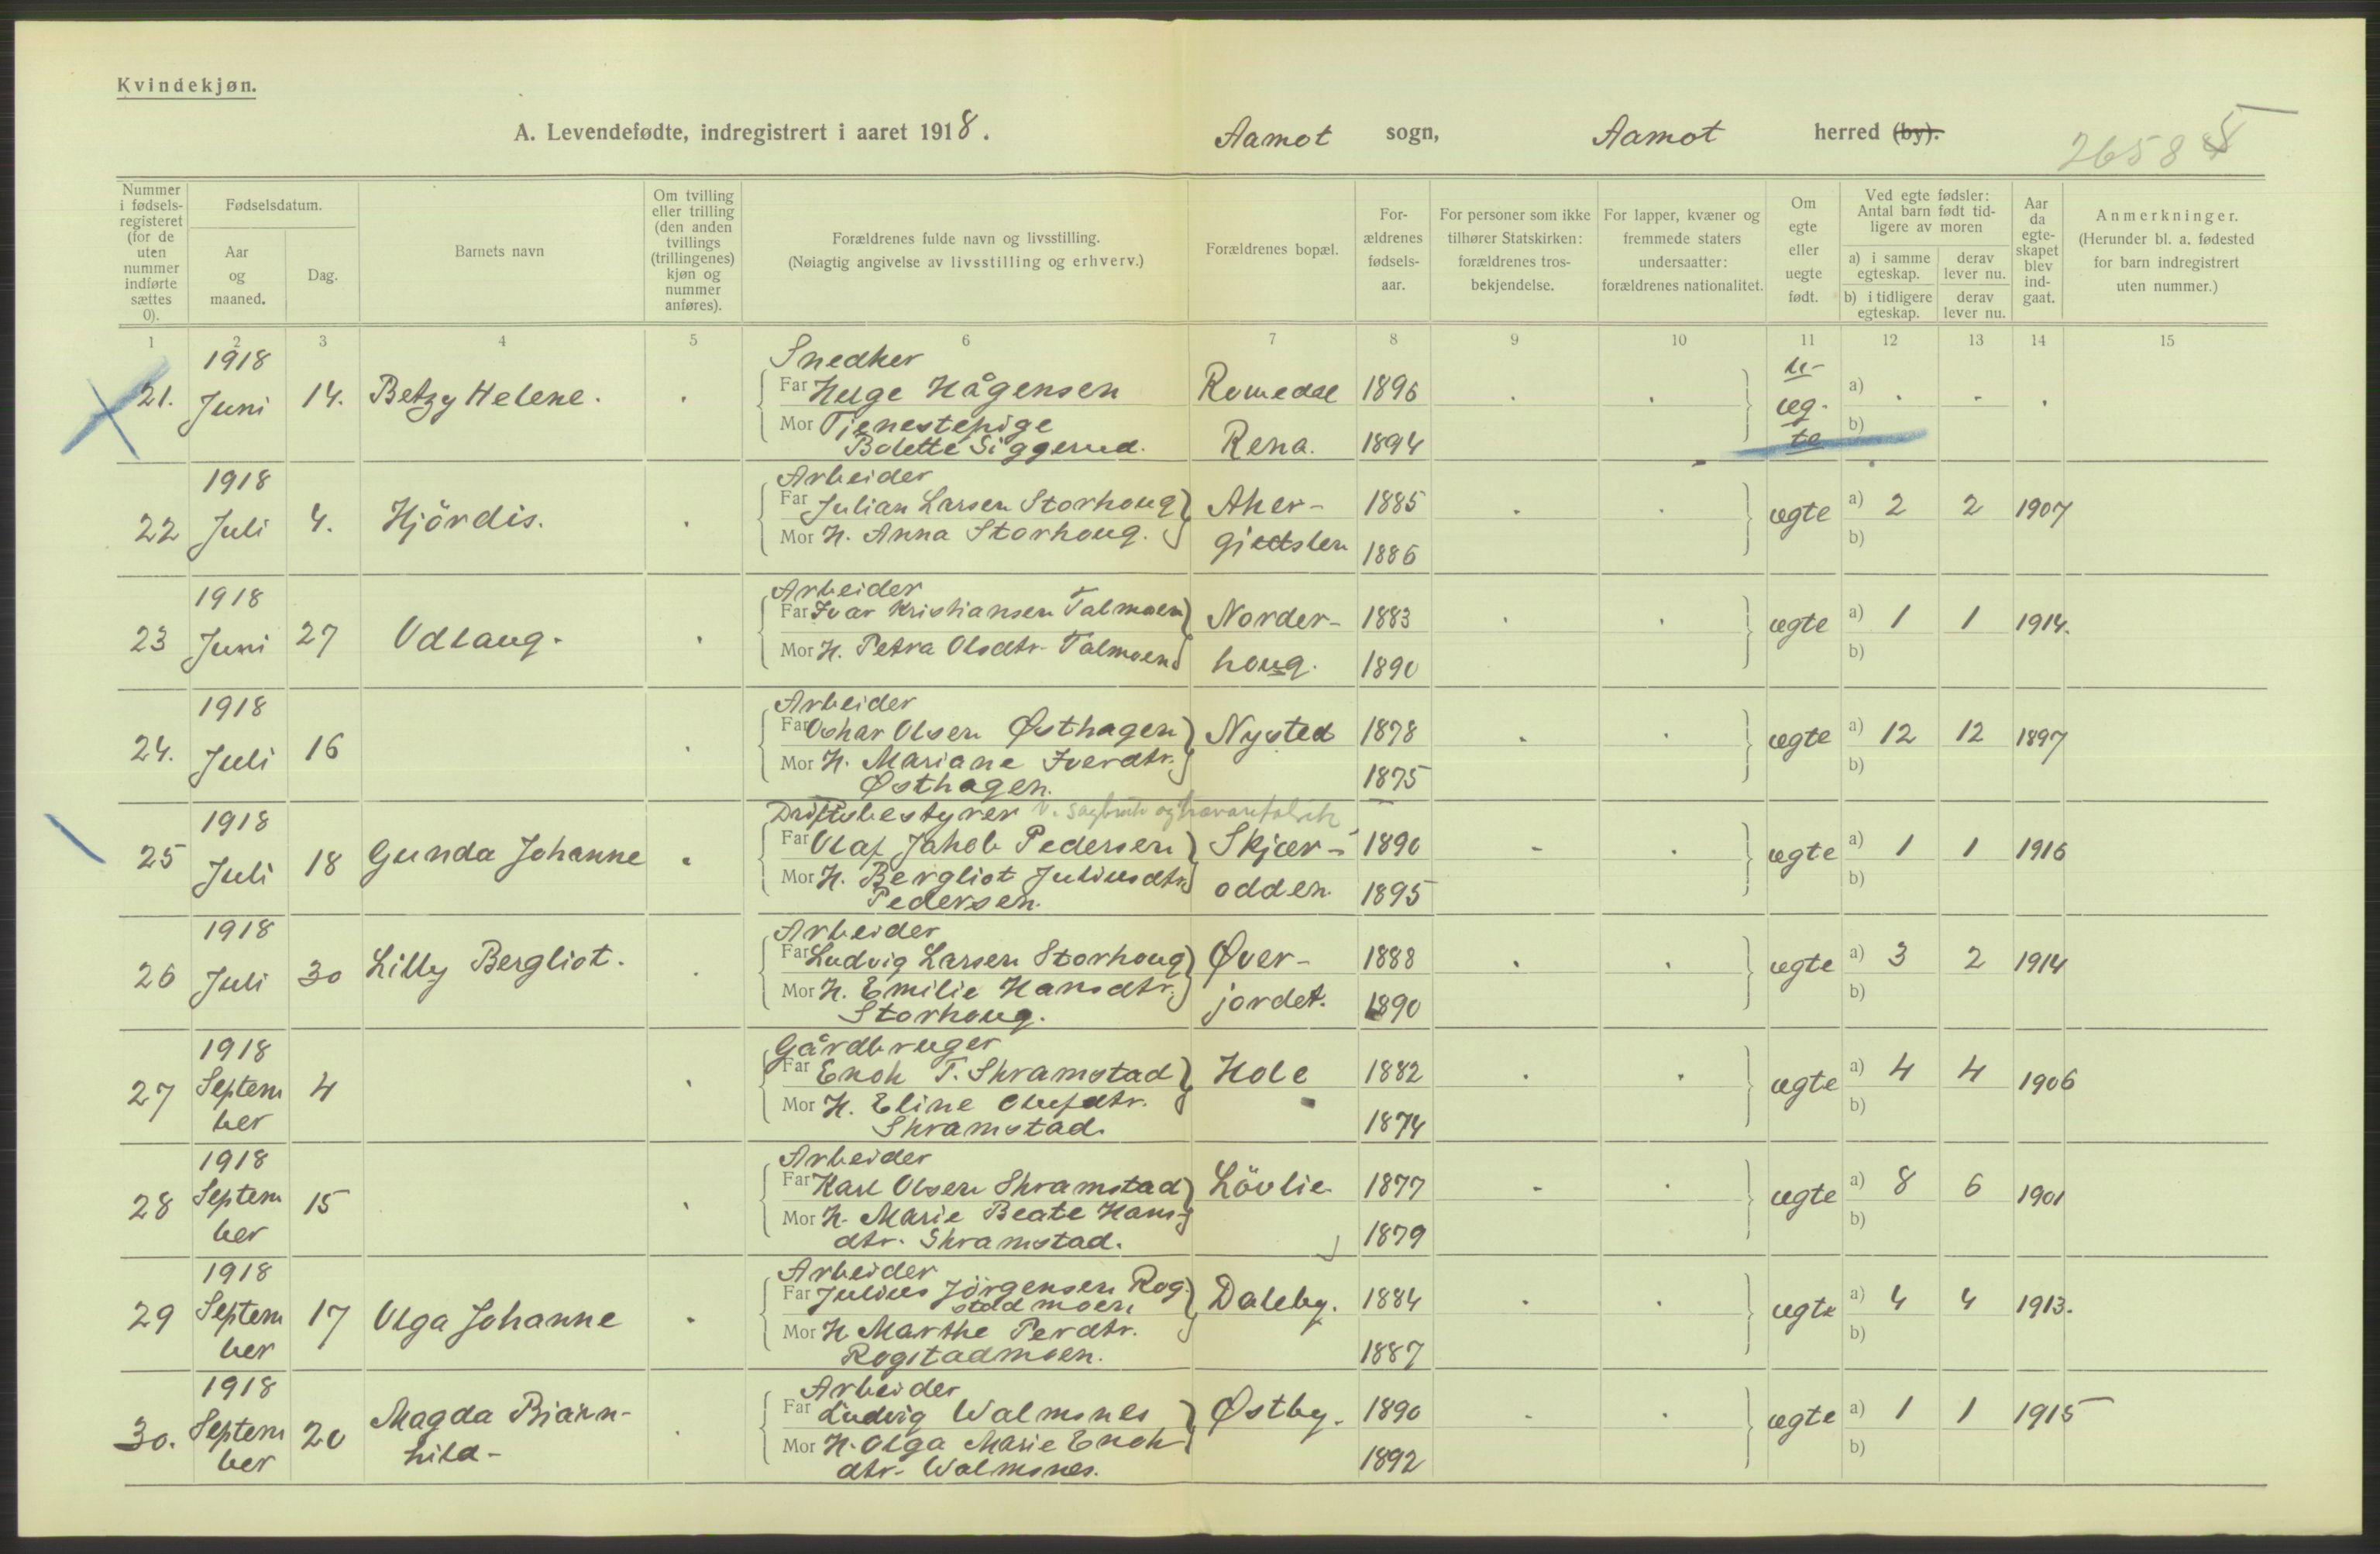 Kvindekjøn.
A. Levendefødte, indregistrert i aaret 1918. Aamot sogn, Aamot herred (by).
2658 5
Nummer i fødsels-registeret (for de uten nummer indførte sættes 0).
Fødselsdatum.
Aar og maaned.
Dag.
Barnets navn
Om tvilling eller trilling (den anden tvillings (trillingenes) kjøn og nummer anføres).
Forældrenes fulde navn og livsstilling.
(Nøiagtig angivelse av livsstilling og erhverv.)
Forældrenes bopæl.
For-ældrenes fødsels-aar.
For personer som ikke tilhører Statskirken: forældrenes tros-bekjendelse.
For lapper, kvæner og fremmede staters undersaatter: forældrenes nationalitet.
Om egte eller uegte født.
Ved egte fødsler: Antal barn født tid-ligere av moren
a) i samme egteskap.
derav lever nu.
b) i tidligere egteskap.
derav lever nu.
Aar da egte-skapet blev ind-gaat.
Anmerkninger.
(Herunder bl. a. fødested for barn indregistrert uten nummer.)
1 2 3 4 5 6 7 8 9 10 11 12 13 14 15
1918 Snedker u-
21. Juni 14. Betzy Helene. Far Huge Hågensen Romedal 1896 æg- a)
Mor Tjenestepige te b)
Bolette Siggerud. Rena. 1894
1918 Arbeider
22 Juli 4. Hjördis. Far Julian Larsen Storhoug Aker- 1885 ægte a) 2 2 1907
Mor H. Anna Storhoug. gjedslen 1886 b)
1918 Arbeider
23 Juni 27 Odlaug. Far Ivar Kristiansen Talmoen Norder- 1883 ægte a) 1 1 1914.
Mor H. Petra Olsdtr. Talmoen houg. 1890 b)
1918 Arbeider
24. Juli 16 Far Oskar Olsen Østhagen Nysted 1878 ægte a) 12 12 1897
Mor H. Mariane Iverdtr. b)
Østhagen. 1875
1918 Driftsbestyrer v. sagbruk og trævarefabrik
25 Juli 18 Gunda Johanne Far Olaf Jakob Pedersen Skjær- 1890 ægte a) 1 1 1916
Mor H. Bergliot Juliusdtr. odden 1895 b)
Pedersen.
1918 Arbeider
26 Juli 30 Lilly Bergliot. Far Ludvig Larsen Storhoug Øver- 1888 ægte a) 3 2 1914
Mor H. Emilie Hansdtr. jordet. 1890 b)
Storhoug.
1918 Gårdbruger
27 Septem Far Enok T. Skramstad Hole 1882 ægte a) 4 4 1906
ber 4 Mor H. Eline Olufdtr. b)
Skramstad. 1874
1918 Arbeider
28 Septem 15 Far Karl Olsen Skramstad Lövlie 1877 ægte a) 8 6 1901
ber Mor H. Marie Beate Hans- b)
dtr. Skramstad. 1879
1918 Arbeider
29 Septem 17 Olga Johanne Far Julius Jörgensen Rog- Daleby. 1884 ægte a) 4 4 1913.
stadmoen
ber Mor H. Marthe Perdtr. b)
Rogstadmoen. 1887
1918 Arbeider
30. Septem 20 Magda Bjarn- Far Ludvig Walmsnes Østby. 1890 ægte a) 1 1 1915
ber hild- Mor H. Olga Marie Enok b)
dtr. Walmsnes. 1892